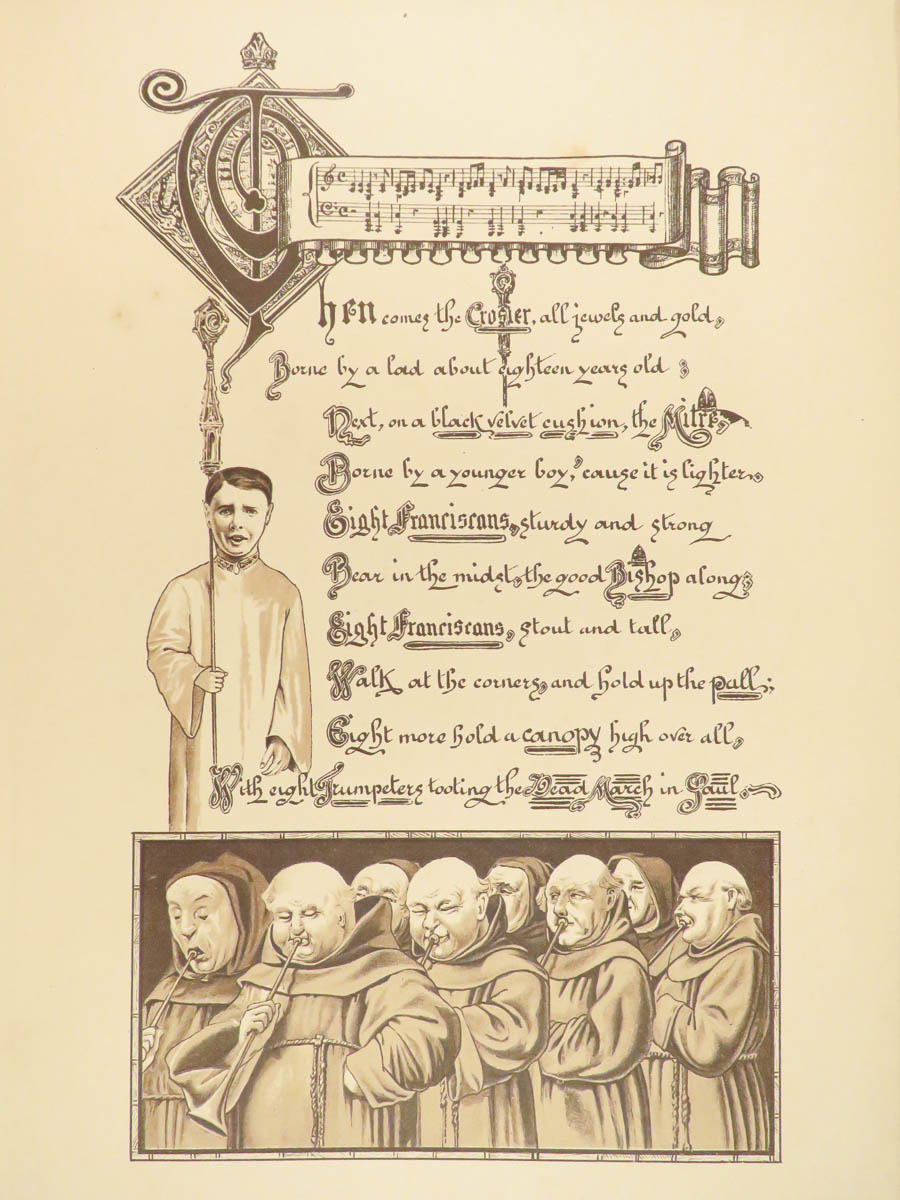 Then comes the Crosier, all jewels and gold,
Borne by a lad about eighteen years old;
Next, on a black velvet cushion, the Mitre,
Borne by a younger boy, 'cause it is lighter.
Eight Franciscans, sturdy and strong
Bear in the midst, the good Bishop along;
Eight Franciscans, stout and tall,
Walk at the corners, and hold up the pall;
Eight more hold a canopy high over all,
With eight Trumpeters tooting the Dead March in Saul.